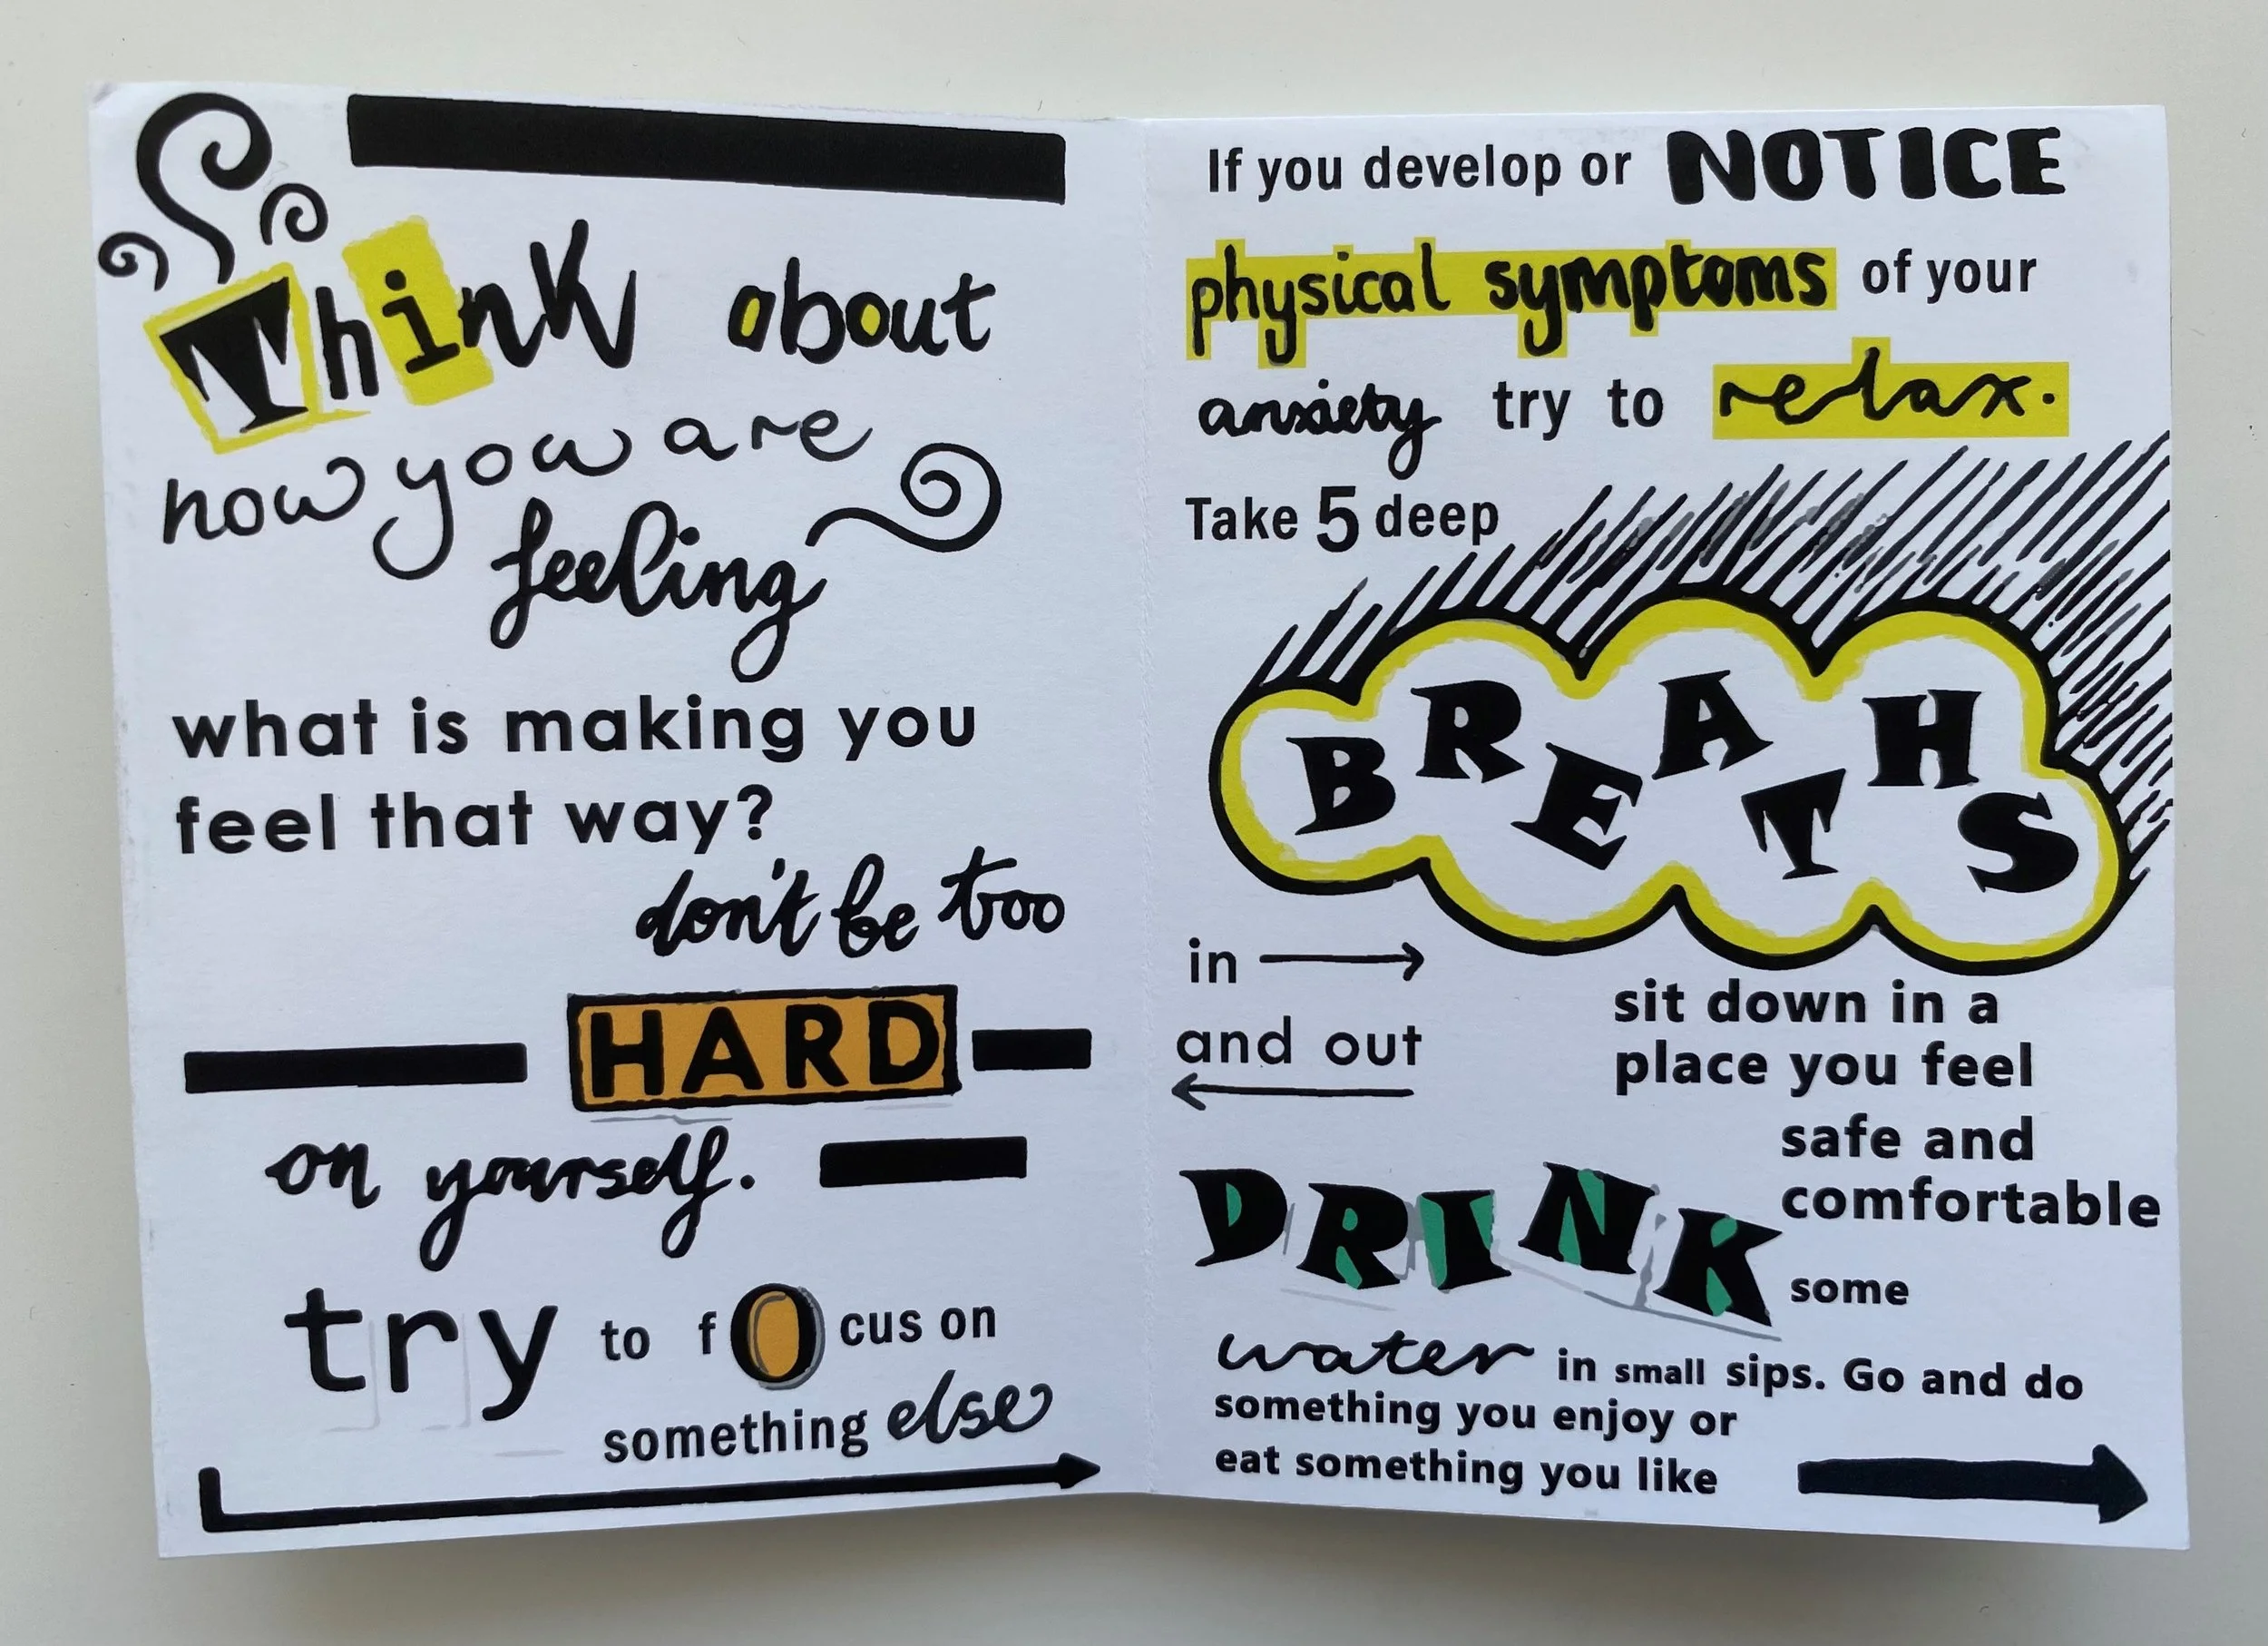 Think about
how you are
feeling
what is making you
feel that way?
don't be too
HARD
on yourself.
try to fOcus on
something else
If you develop or NOTICE
physical symptoms of your
anxiety try to relax.
Take 5 deep
BREATHS
in
and out
sit down in a
place you feel
safe and
comfortable
DRINK some
water in small sips. Go and do
something you enjoy or
eat something you like